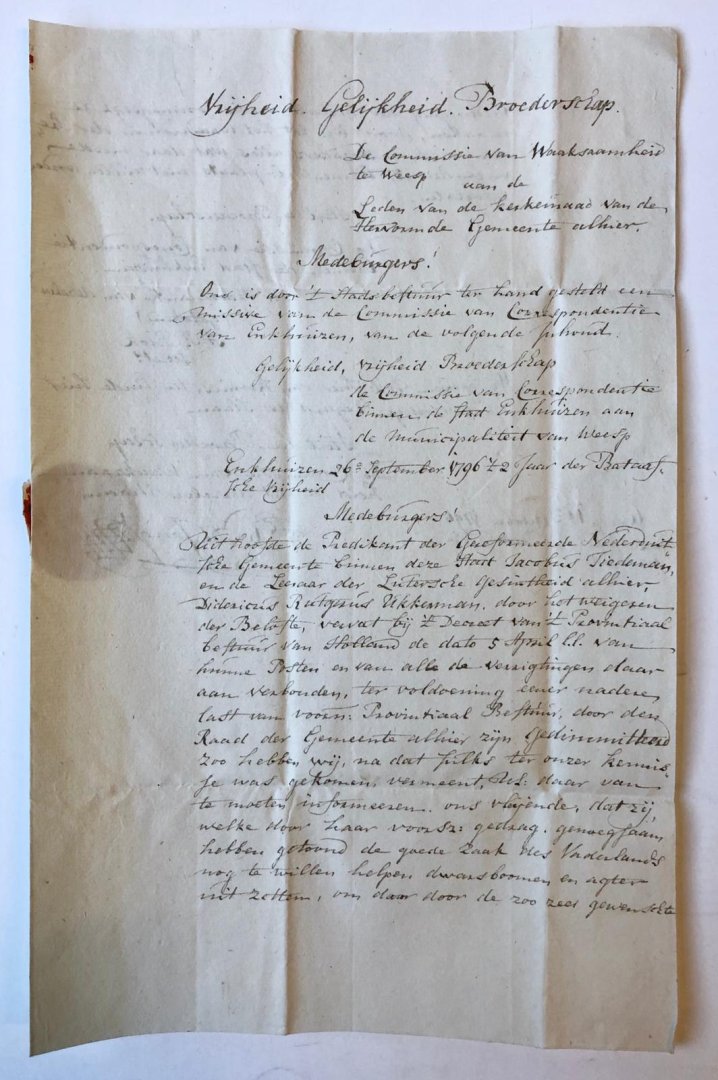 Vrijheid. Gelijkheid. Broederschap.
De Commissie van Waaksaamheid
te Weesp
aan de
Leden van de kerkenraad van de
Hervormde Gemeente alhier.
Medeburgers!
Ons is door 't Stads bestuur ter hand gesteld een
missive van de Commissie van Correspondentie
van Enkhuizen, van de volgende Inhoud.
Gelijkheid, Vrijheid Broederschap
de Commissie van Correspondentie
binnen de Stad Enkhuizen aan
de Municipaliteit van Weesp
Enkhuizen 26e September 1796 't 2 Jaar der Bataaf-
sche Vrijheid
Medeburgers!
Uit hoofde de Predikant der Gereformeerde Nederduit-
sche Gemeente binnen deze Stad Jacobus Tiedeman,
en de Leeraar der Lutersche Gesintheid alhier,
Didericus Rutgerus Ukkerman, door het weigeren
der Belofte, vervat bij 't Decreet van 't Provintiaal
bestuur van Holland de dato 5 April l.l. van
hunne Posten en van alle de verrigtingen daar
aan verbonden, ter voldoening eener nadere
last van voorn: Provintiaal Bestuur, door den
Raad der Gemeente alhier zijn Gedimmitteerd
zoo hebben wij, na dat sulks ter onzer kennis-
se was gekomen, vermeent, Ul: daar van
te moeten informeeren. ons vlijende, dat zij,
welke door haar voorsz: gedrag. genoegsaam
hebben getoond de goede Zaak des Vaderlands
nog te willen helpen dwarsboomen en agter
uit zetten, om daar door de zoo zeer gewenschte